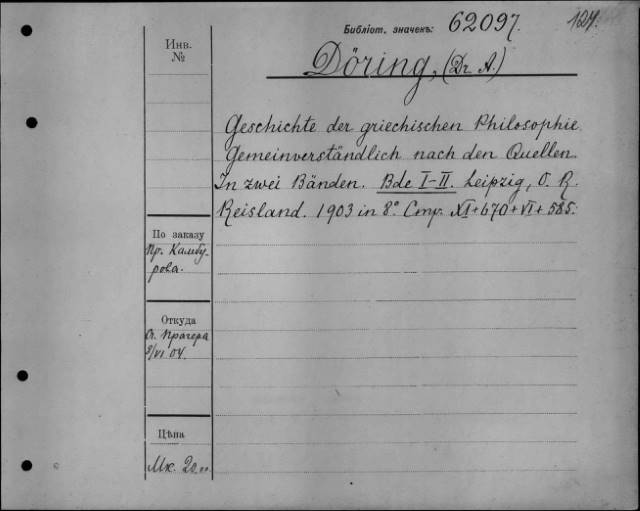 Библіот. значекъ: 62097. 124.
Инв.
№
Döring, (Dr A.)
Geschichte der griechischen Philosophie.
Gemeinverständlich nach den Quellen.
In zwei Bänden. Bde I-II. Leipzig, O. R.
Reisland. 1903 in 8° Стр. XI+670+VI+585.
По заказу
Пр. Камбу-
рова.
Откуда
От Прагера
8/VI 04.
Цѣна
Мк. 20.00